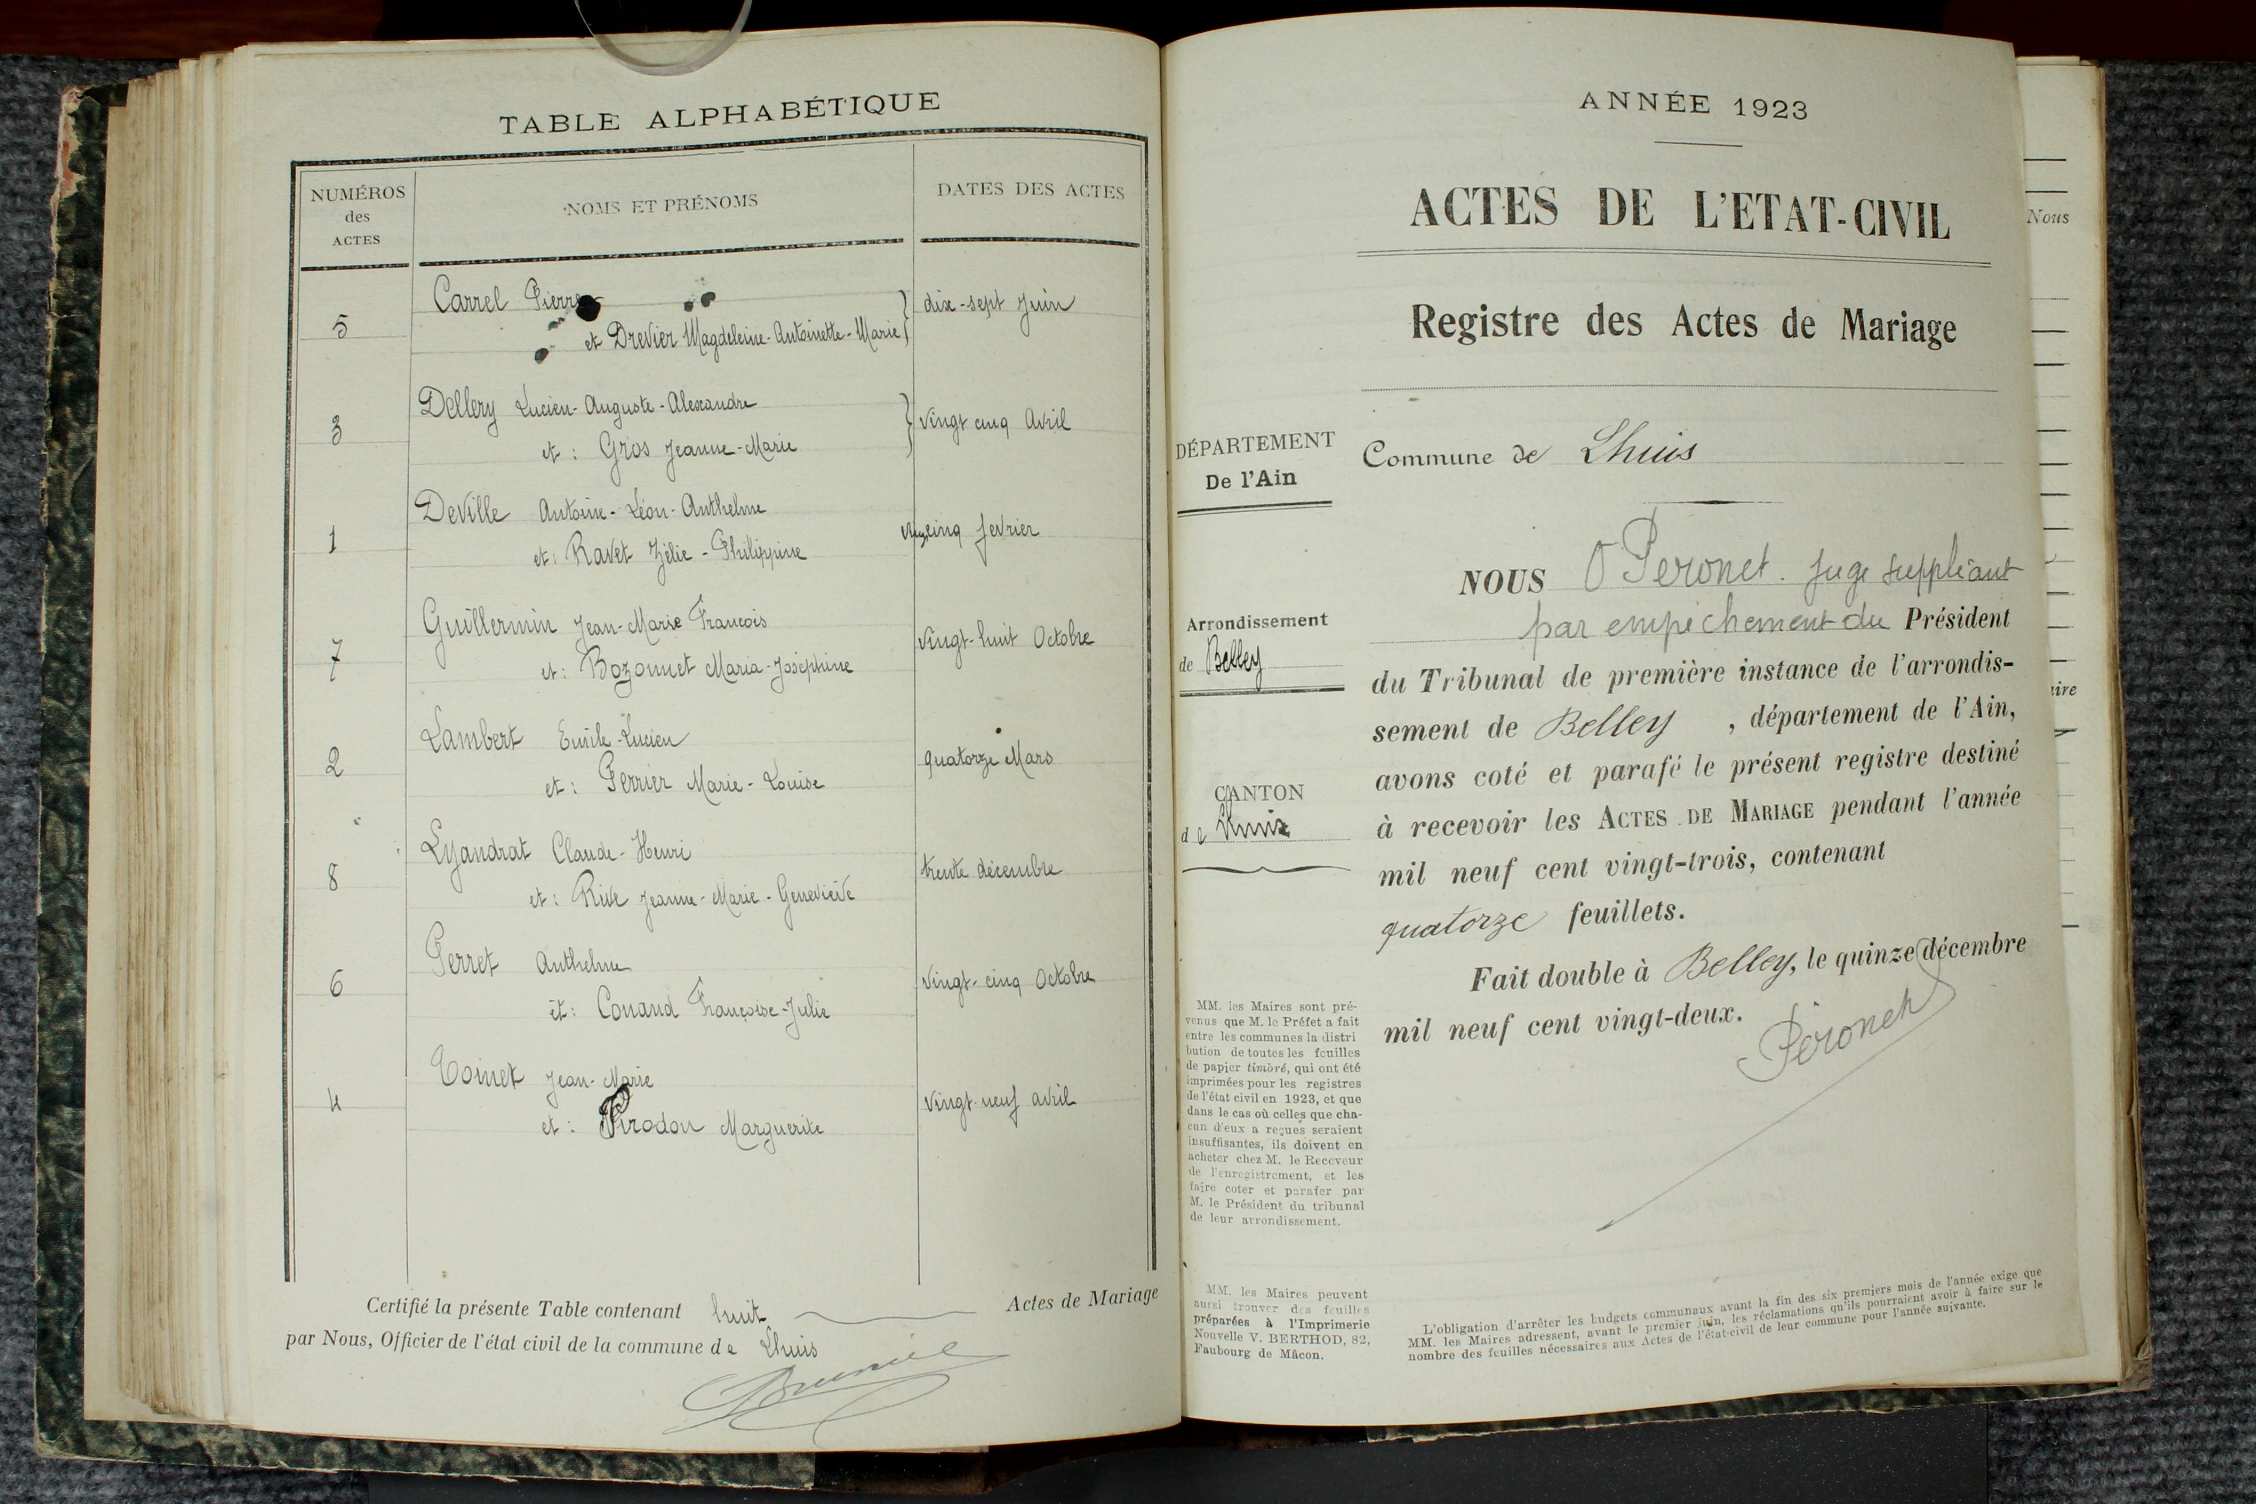 TABLE ALPHABÉTIQUE
NUMÉROS
des
ACTES
NOMS ET PRÉNOMS
DATES DES ACTES
5
Carrel Pierre
et Drevier Magdeleine-Antoinette-Marie
dix-sept Juin
3
Dellery Lucien-Auguste-Alexandre
et: Gros Jeanne-Marie
Vingt cinq Avril
1
Deville Antoine-Léon-Anthelme
et: Ravet Zélie-Philippine
cinq fevrier
7
Guillermin Jean-Marie François
et: Bozonnet Maria-Joséphine
Vingt-huit Octobre
2
Lambert Emile-Lucien
et: Perrier Marie-Louise
quatorze Mars
8
Lyandrat Claude-Henri
et: Rive Jeanne-Marie-Geneviève
trente décembre
6
Perret Anthelme
et: Conand Françoise-Julie
Vingt-cinq Octobre
4
Toinet Jean-Marie
et: Pirodon Marguerite
Vingt-neuf avril
Certifié la présente Table contenant huit Actes de Mariage
par Nous, Officier de l'état civil de la commune de Lhuis
ANNÉE 1923
ACTES DE L'ETAT-CIVIL
Registre des Actes de Mariage
DÉPARTEMENT
De l'Ain
Commune de Lhuis
Arrondissement
de Belley
CANTON
de Lhuis
NOUS O Peronet. Juge suppléant
par empêchement du Président
du Tribunal de première instance de l'arrondis-
sement de Belley, département de l'Ain,
avons coté et parafé le présent registre destiné
à recevoir les ACTES DE MARIAGE pendant l'année
mil neuf cent vingt-trois, contenant
quatorze feuillets.
Fait double à Belley, le quinze décembre
mil neuf cent vingt-deux.
Péronet
MM. les Maires sont pré-
venus que M. le Préfet a fait
entre les communes la distri
bution de toutes les feuilles
de papier timbré, qui ont été
imprimées pour les registres
de l'état civil en 1923, et que
dans le cas où celles que cha-
cun d'eux a reçues seraient
insuffisantes, ils doivent en
acheter chez M. le Receveur
de l'enregistrement, et les
faire coter et parafer par
M. le Président du tribunal
de leur arrondissement.
MM. les Maires peuvent
aussi trouver des feuilles
préparées à l'Imprimerie
Nouvelle V. BERTHOD, 82,
Faubourg de Mâcon.
L'obligation d'arrêter les budgets communaux avant la fin des six premiers mois de l'année exige que
MM. les Maires adressent, avant le premier juin, les réclamations qu'ils pourraient avoir à faire sur le
nombre des feuilles nécessaires aux Actes de l'état-civil de leur commune pour l'année suivante.
Nous
aire